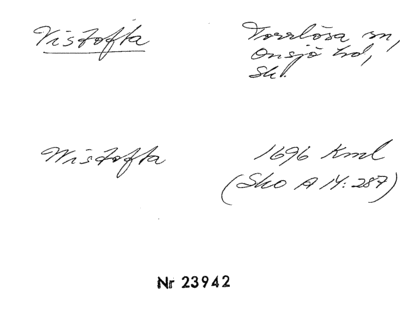 Vistofta
Torrlösa sn,
Onsjö hd,
Sk.
Wistofta
1696 Kml
(Sko A 14:287)
Nr 23942